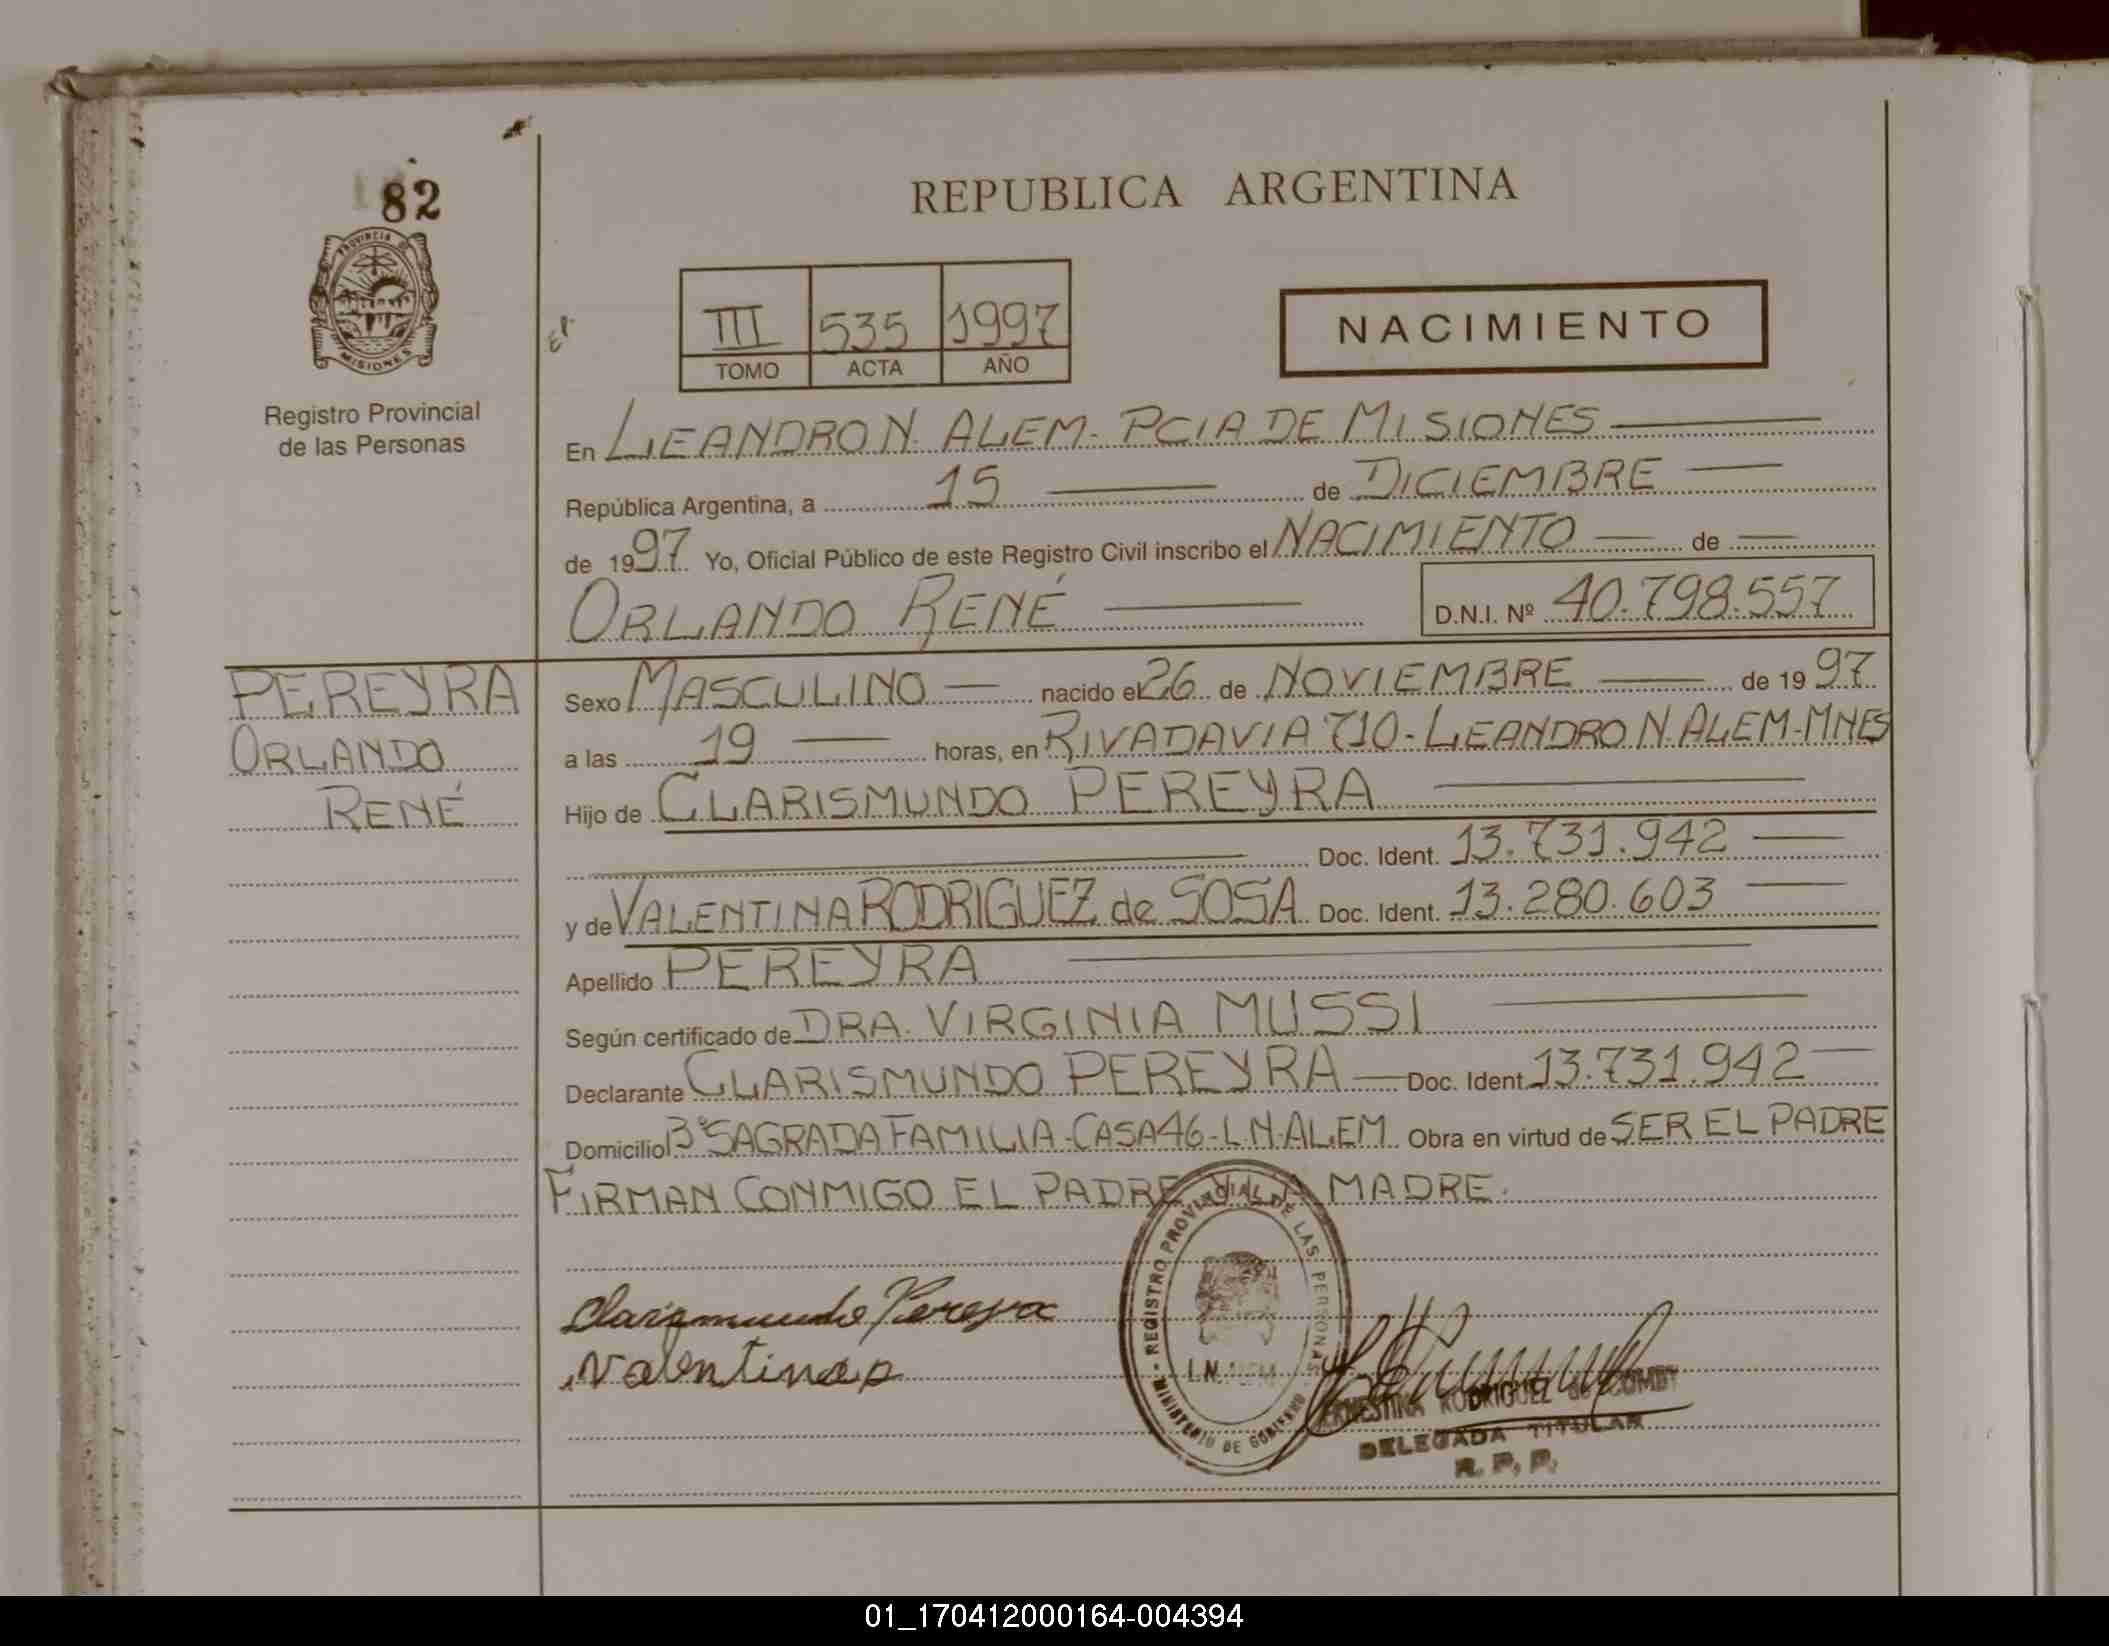 82
PROVINCIA DE
MISIONES
Registro Provincial
de las Personas
REPUBLICA ARGENTINA
III 535 1997
TOMO ACTA AÑO
NACIMIENTO
En LEANDRO N. ALEM - PCIA DE MISIONES
República Argentina, a 15 de DICIEMBRE
de 1997 Yo, Oficial Público de este Registro Civil inscribo el NACIMIENTO de
ORLANDO RENÉ D.N.I. Nº 40.798.557
PEREYRA
ORLANDO
RENÉ
Sexo MASCULINO nacido el 26 de NOVIEMBRE de 1997
a las 19 horas, en RIVADAVIA 710 - LEANDRO N. ALEM - MNES
Hijo de CLARISMUNDO PEREYRA
Doc. Ident. 13.731.942
y de VALENTINA RODRIGUEZ de SOSA Doc. Ident. 13.280.603
Apellido PEREYRA
Según certificado de DRA. VIRGINIA MUSSI
Declarante CLARISMUNDO PEREYRA Doc. Ident. 13.731.942
Domicilio Bº SAGRADA FAMILIA - CASA 46 - L.N. ALEM Obra en virtud de SER EL PADRE
FIRMAN CONMIGO EL PADRE Y LA MADRE.
REGISTRO PROVINCIAL DE LAS PERSONAS
L.N. ALEM
MINISTERIO DE GOBIERNO
Clarismundo Pereyra
Valentina
ERNESTINA RODRIGUEZ de
DELEGADA TITULAR
R. P. P.
01_170412000164-004394